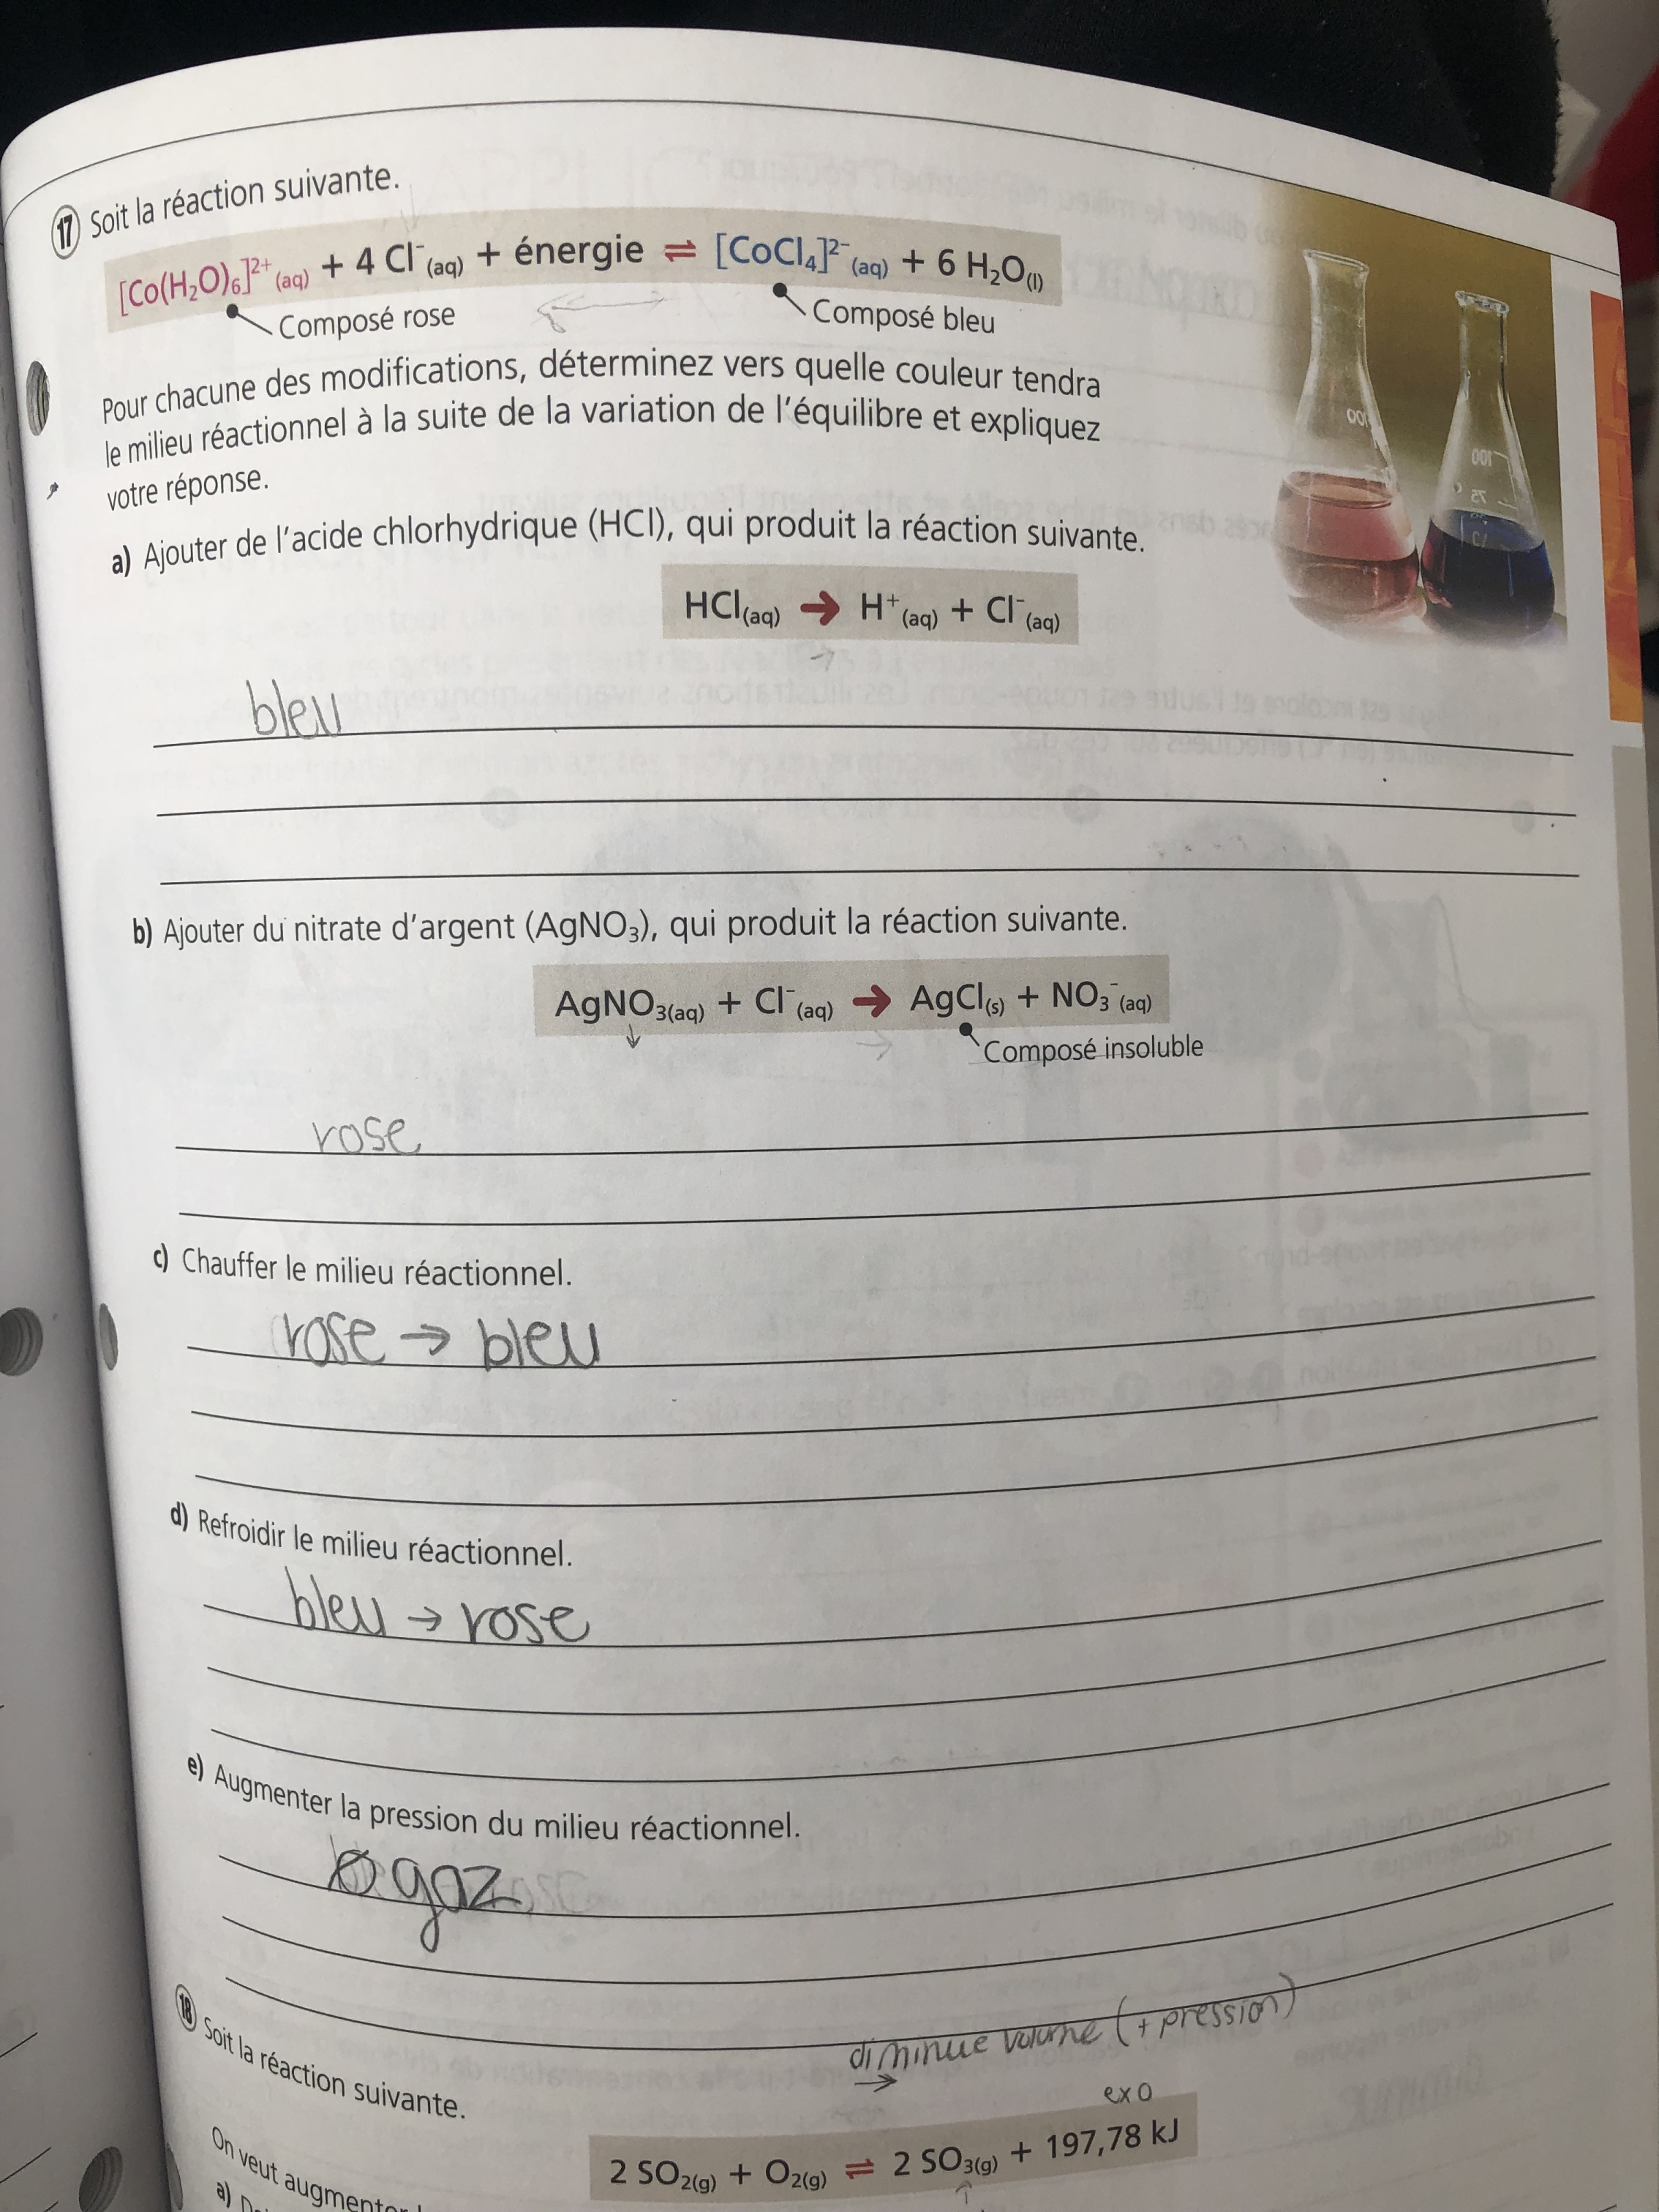 17 Soit la réaction suivante.
[Co(H₂O)₆]²⁺(aq) + 4 Cl⁻(aq) + énergie ⇌ [CoCl₄]²⁻(aq) + 6 H₂O(l)
Composé rose
Composé bleu
Pour chacune des modifications, déterminez vers quelle couleur tendra
le milieu réactionnel à la suite de la variation de l'équilibre et expliquez
votre réponse.
a) Ajouter de l'acide chlorhydrique (HCl), qui produit la réaction suivante.
HCl(aq) → H⁺(aq) + Cl⁻(aq)
→
bleu
b) Ajouter du nitrate d'argent (AgNO₃), qui produit la réaction suivante.
AgNO₃(aq) + Cl⁻(aq) → AgCl(s) + NO₃⁻(aq)
↓ →
Composé insoluble
rose
c) Chauffer le milieu réactionnel.
rose → bleu
d) Refroidir le milieu réactionnel.
bleu → rose
e) Augmenter la pression du milieu réactionnel.
Ø gaz
diminue volume (+ pression)
→
18 Soit la réaction suivante.
exo
2 SO₂(g) + O₂(g) ⇌ 2 SO₃(g) + 197,78 kJ
↑
On veut augmenter
a)